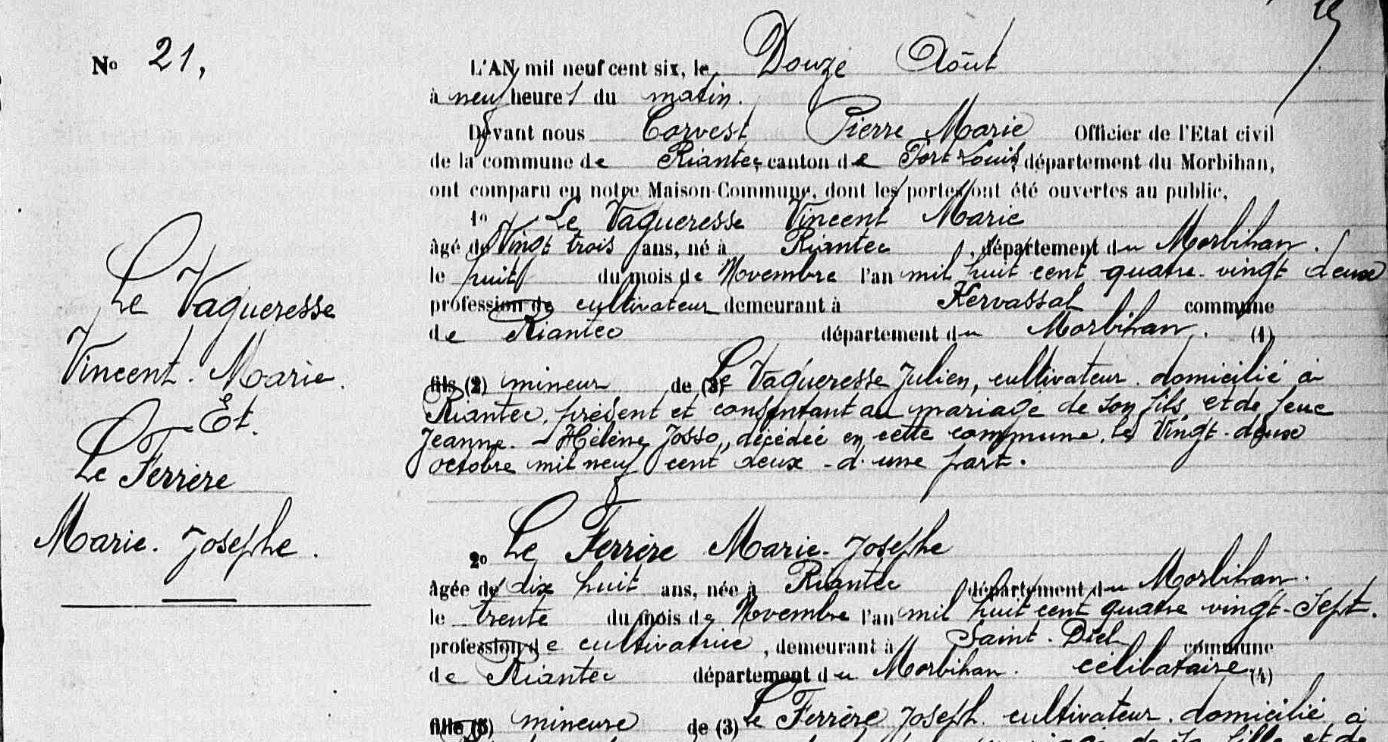 Nº 21,
L'AN mil neuf cent six, le Douze Août
à neuf heures du matin.
Devant nous Corvest Pierre Marie Officier de l'Etat civil
de la commune de Riantec, canton de Port-Louis, département du Morbihan,
ont comparu en notre Maison-Commune, dont les portes ont été ouvertes au public,
1º Le Vaqueresse Vincent Marie
âgé de Vingt trois ans, né à Riantec, département du Morbihan.
le huit du mois de Novembre l'an mil huit cent quatre-vingt deux
profession de cultivateur demeurant à Kervassal commune
de Riantec département du Morbihan. (1)
fils (2) mineur de (3) Le Vaqueresse Julien, cultivateur domicilié à
Riantec, présent et consentant au mariage de son fils, et de feue
Jeanne-Hélène Josso, décédée en cette commune, le Vingt-deux
octobre mil neuf cent deux - d'une part.
Le Vaqueresse
Vincent. Marie.
Et.
Le Ferrère
Marie. Josephe.
2º Le Ferrère Marie-Josephe
âgée de dix huit ans, née à Riantec département du Morbihan.
le trente du mois de Novembre l'an mil huit cent quatre vingt-sept.
profession de cultivatrice, demeurant à Saint-Diel commune
de Riantec département du Morbihan. célibataire (4)
fille (5) mineure de (3) Le Ferrère Joseph. cultivateur. domicilié à